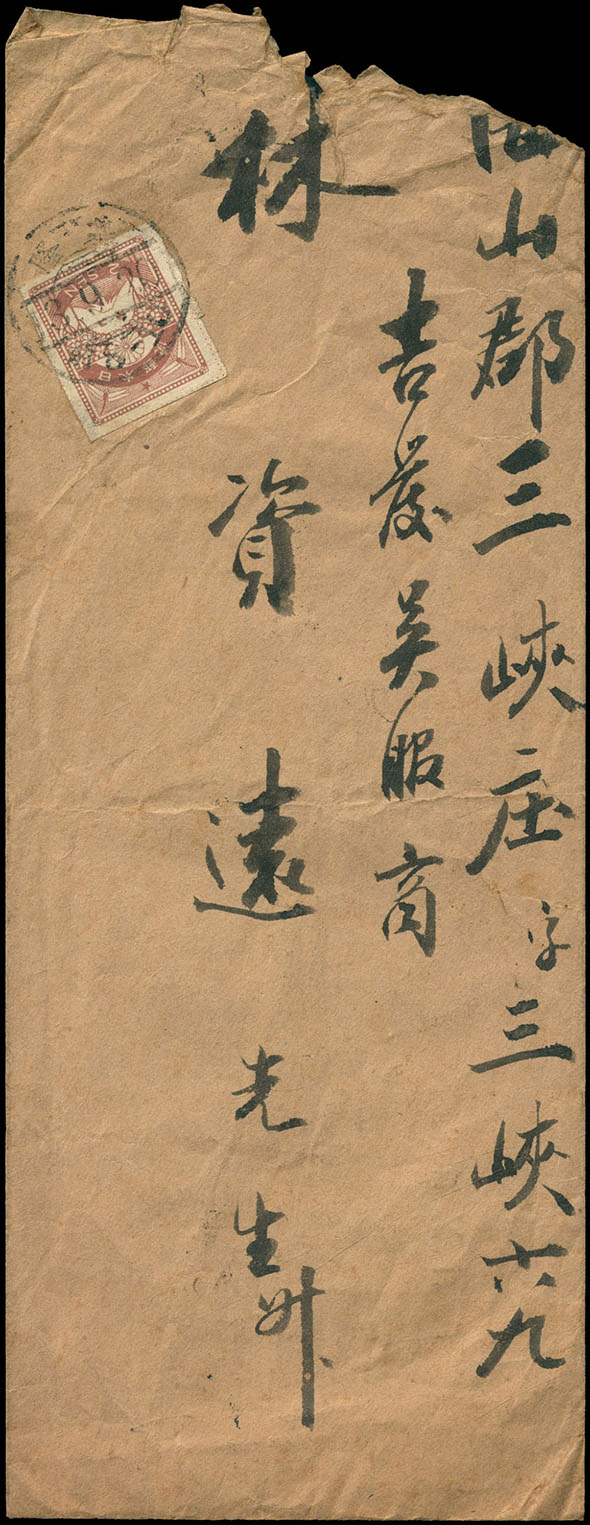 海山郡三峽庄字三峽六九
吉發吳服商
林資遠先生
SEN